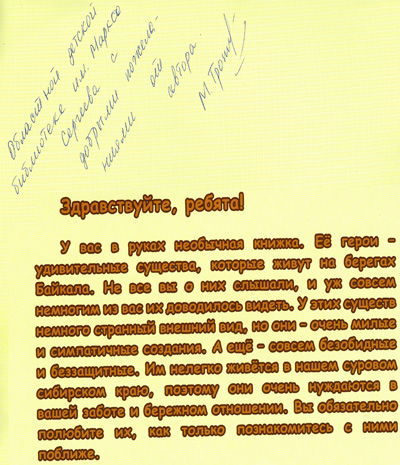 Областной детской
библиотеке им. Марка
Сергеева с
добрыми пожела-
ниями от
автора.
Здравствуйте, ребята!
У вас в руках необычная книжка. Её герои –
удивительные существа, которые живут на берегах
Байкала. Не все вы о них слышали, и уж совсем
немногим из вас их доводилось видеть. У этих существ
немного странный внешний вид, но они – очень милые
и симпатичные создания. А ещё – совсем безобидные
и беззащитные. Им нелегко живётся в нашем суровом
сибирском краю, поэтому они очень нуждаются в
вашей заботе и бережном отношении. Вы обязательно
полюбите их, как только познакомитесь с ними
поближе.